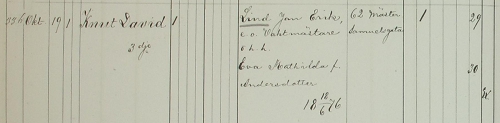 22 6 Okt. 19 1 Knut David 1 Lind Jan Erik, 62 Mäster 1 29
3 dje e. o. Vaktmästare Samuelsgata
o. h. h.
Eva Mathilda f. 30
Andersdotter
18 18/6 76